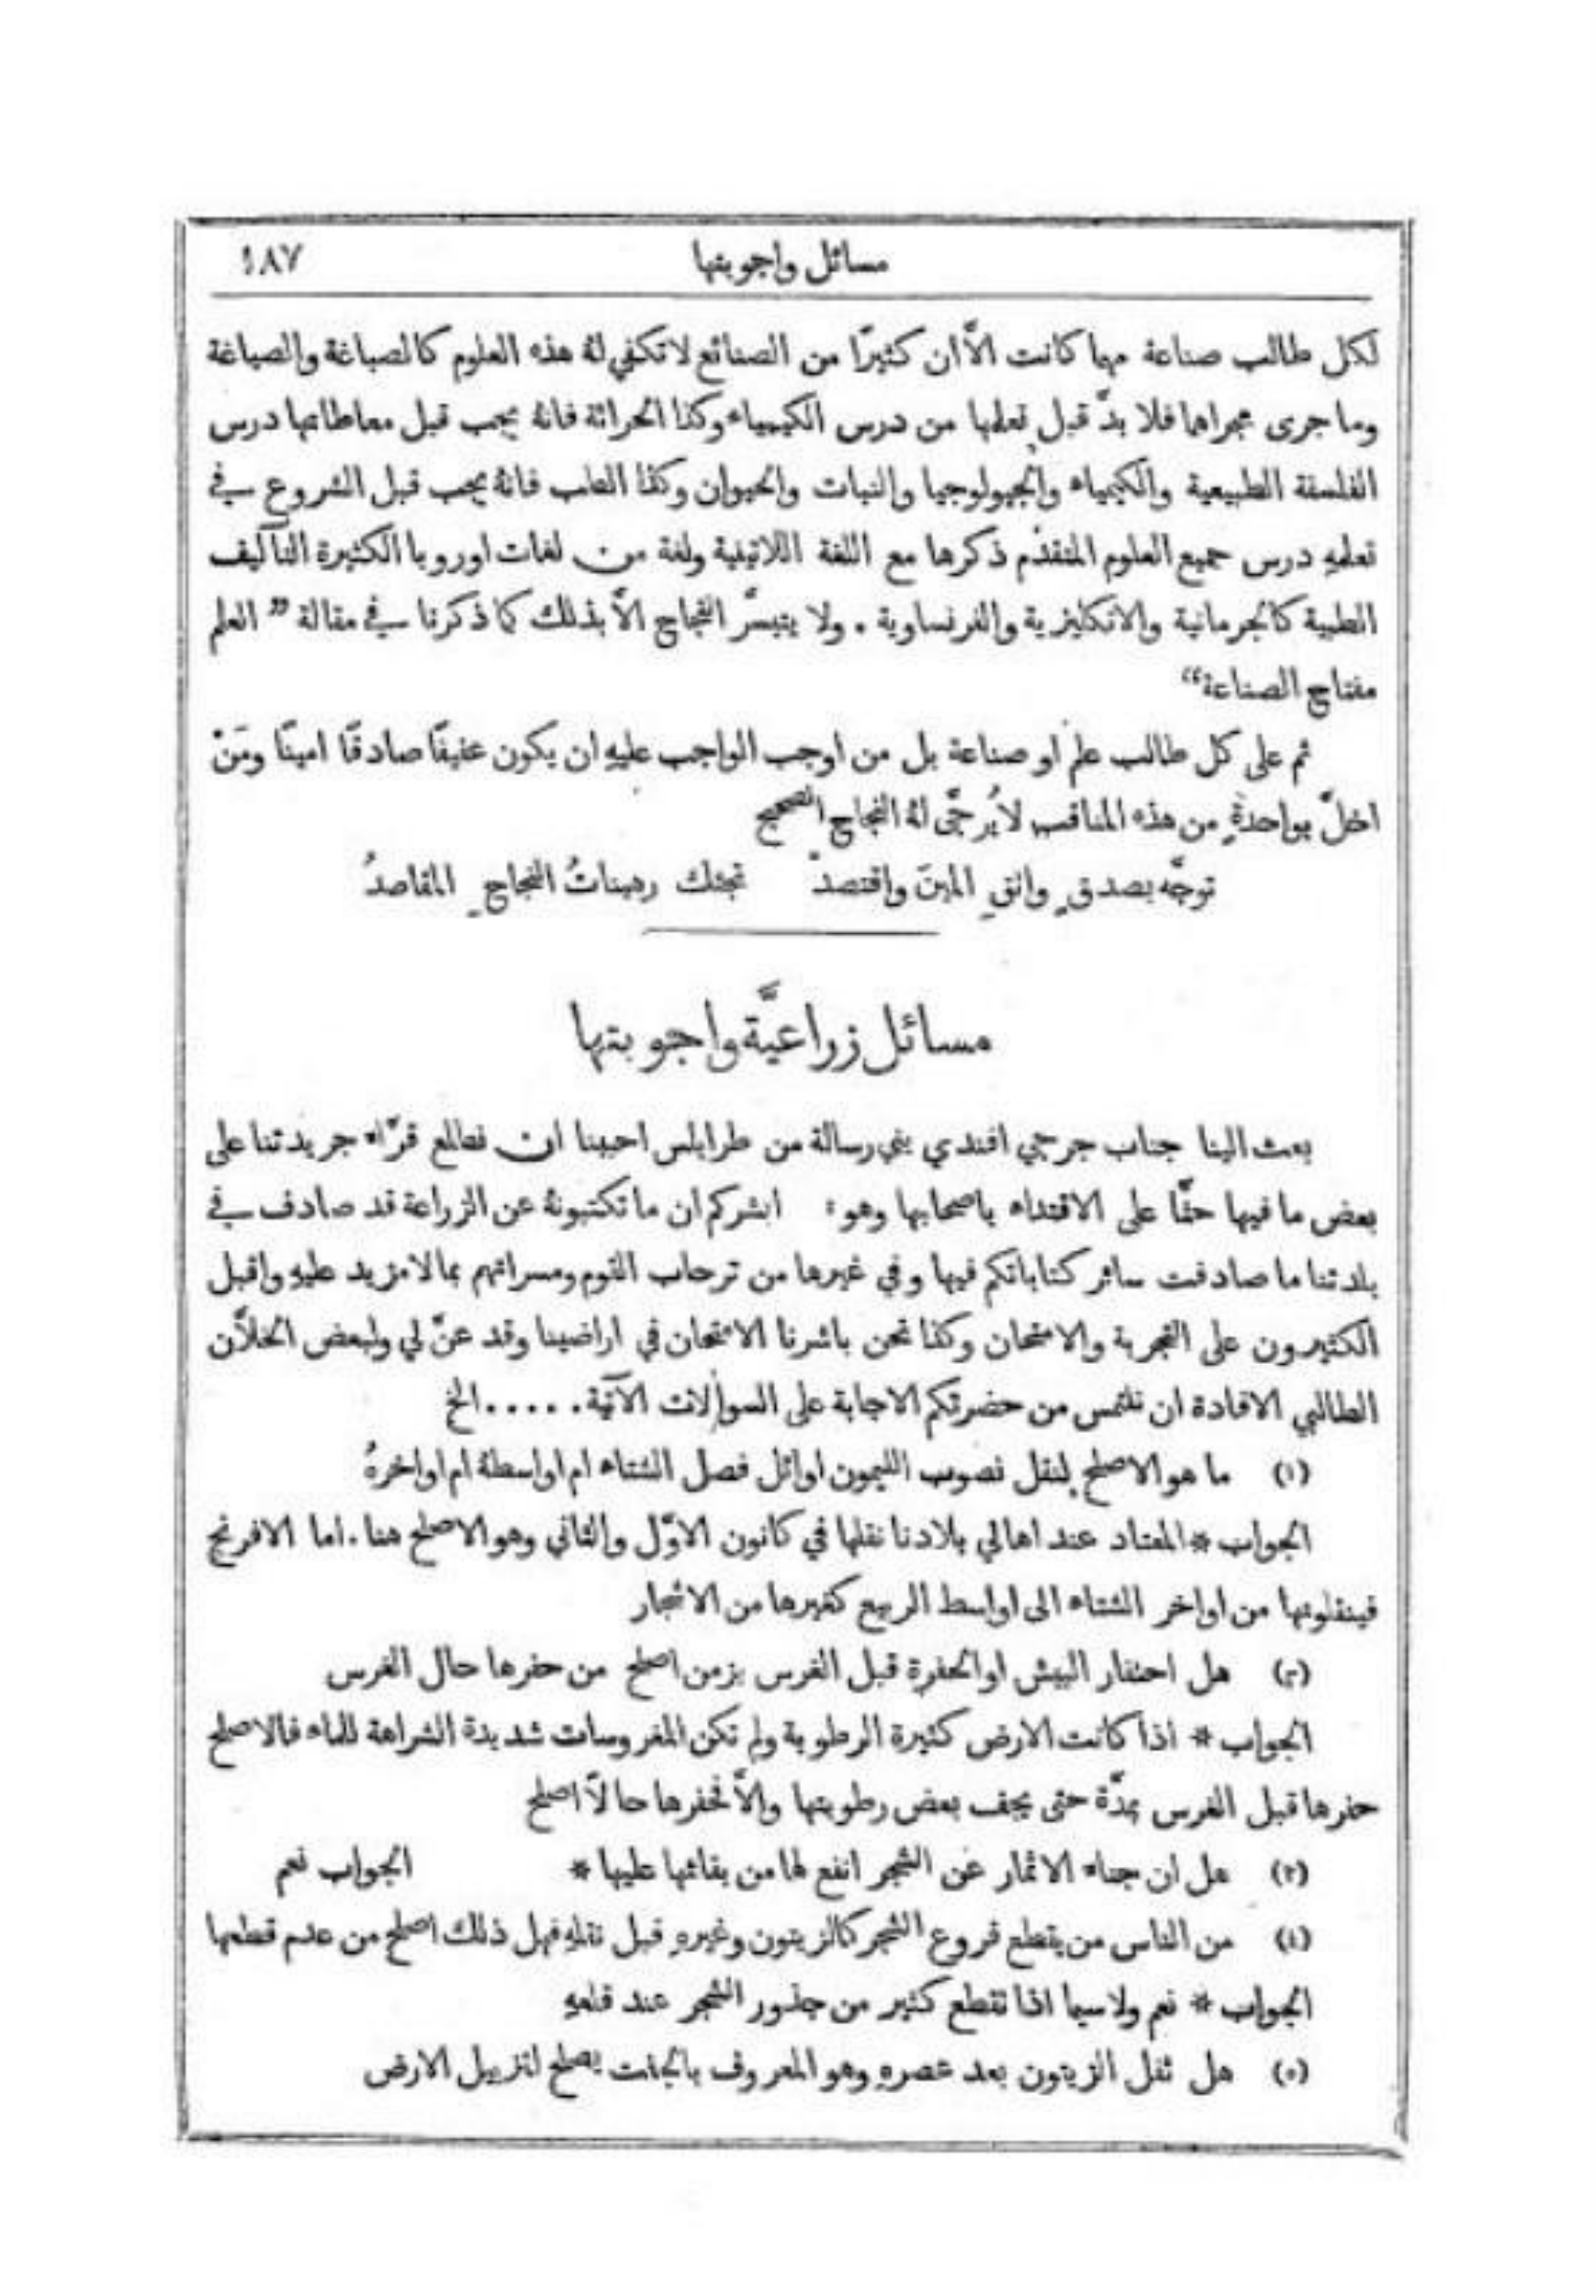 مسائل واجوبتها ١٨٧
لكل طالب صناعة مهما كانت الاَّ ان كثيرًا من الصنائع لا تكفي لهُ هذه العلوم كالصباغة والصياغة
وما جرى مجراهما فلا بدَّ قبل تعلمها من درس الكيمياء وكذا الحراثة فانهُ يجب قبل معاطاتها درس
الفلسفة الطبيعية والكيمياء والجيولوجيا والنبات والحيوان وكذا الطب فانهُ يجب قبل الشروع في
تعلمهِ درس جميع العلوم المتقدّم ذكرها مع اللغة اللاتينية ولغة من لغات اوروبا الكثيرة التآليف
الطبية كالجرمانية والانكليزية والفرنساوية . ولا يتيسَّر النجاح الاَّ بذلك كما ذكرنا في مقالة ”العلم
مفتاح الصناعة“
ثم على كل طالب علم او صناعة بل من اوجب الواجب عليهِ ان يكون عفيفًا صادقًا امينًا ومَنْ
اخلَّ بواحدةٍ من هذه المناقب لا يُرجَّى لهُ النجاح الصحيح
توجَّه بصدقٍ واتقِ المينَ واقتصدْ تجئك رهيناتُ النجاحِ المقاصدُ
مسائل زراعيَّة واجوبتها
بعث الينا جناب جرجي افندي يني رسالة من طرابلس احببنا ان نطلع قرَّاء جريدتنا على
بعض ما فيها حثًّا على الاقتداء باصحابها وهو: ابشركم ان ما تكتبونهُ عن الزراعة قد صادف في
بلدتنا ما صادفت سائر كتاباتكم فيها وفي غيرها من ترحاب القوم ومسراتهم بما لا مزيد عليهِ واقبل
الكثيرون على التجربة والامتحان وكذا نحن باشرنا الامتحان في اراضينا وقد عنَّ لي ولبعض الخلاَّن
الطالبي الافادة ان نلتمس من حضرتكم الاجابة على السوالات الآتية . . . . . الخ
(١) ما هو الاصلح لنقل نصوب الليمون اوائل فصل الشتاء ام اواسطهُ ام اواخرهُ
الجواب * المعتاد عند اهالي بلادنا نقلها في كانون الاوَّل والثاني وهو الاصلح هنا . اما الافرنج
فينقلونها من اواخر الشتاء الى اواسط الربيع كغيرها من الاشجار
(٢) هل احتفار البيش او الحفرة قبل الغرس بزمن اصلح من حفرها حال الغرس
الجواب * اذا كانت الارض كثيرة الرطوبة ولم تكن المغروسات شديدة الشراهة للماء فالاصلح
حفرها قبل الغرس بمدَّة حتى يجف بعض رطوبتها والاَّ فحفرها حالاً اصلح
(٣) هل ان جناء الاثمار عن الشجر انفع لها من بقائها عليها * الجواب نعم
(٤) من الناس من يقطع فروع الشجر كالزيتون وغيرهِ قبل نقلهِ فهل ذلك اصلح من عدم قطعها
الجواب * نعم ولاسيما اذا تقطع كثير من جذور الشجر عند قلعهِ
(٥) هل ثفل الزيتون بعد عصرهِ وهو المعروف بالجفت يصلح لتزبيل الارض